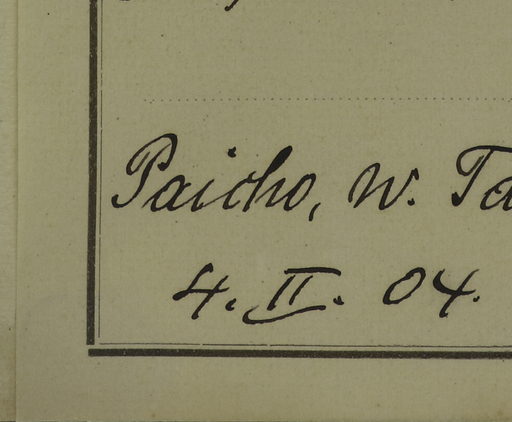 Paicho, w. Ta
4. II. 04.